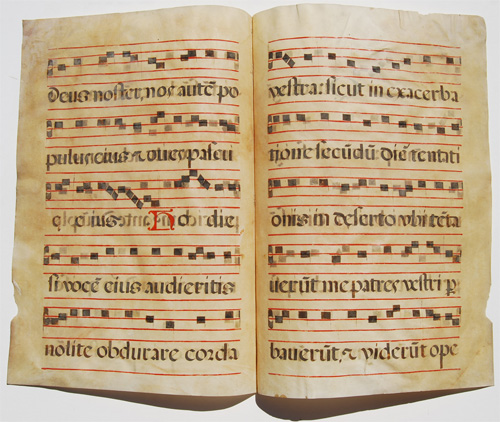 Deus noster, nos autē po
pulus eius & oves pascu
eius. Ho die
si vocē eius audieritis
nolite obdurare corda
vestra: sicut in exacerba
tione secūdū diē tentati
onis in deserto vbi tēta
uerūt me patres vestri ꝓ
bauerūt, & viderūt ope